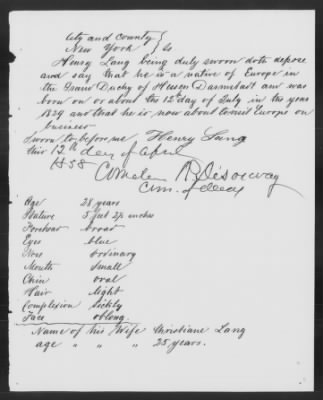 City and County {
New York } ss
Henry Lang being duly sworn doth depose
and say that he is a native of Europe in
the Grand Duchy of Hessen Darmstadt am was
born on or about the 12 day of July in the year
1829 and that he is now about to visit Europe on
business
Sworn to before me Henry Lang
this 12th day of April
1858
Age 28 years
Stature 5 feet 2½ inches
Forehead broad
Eyes blue
Nose ordinary
Mouth small
Chin oval
Hair light
Complexion sickly
Face oblong.
Name of his Wife Christiane Lang
age " " " 25 years.